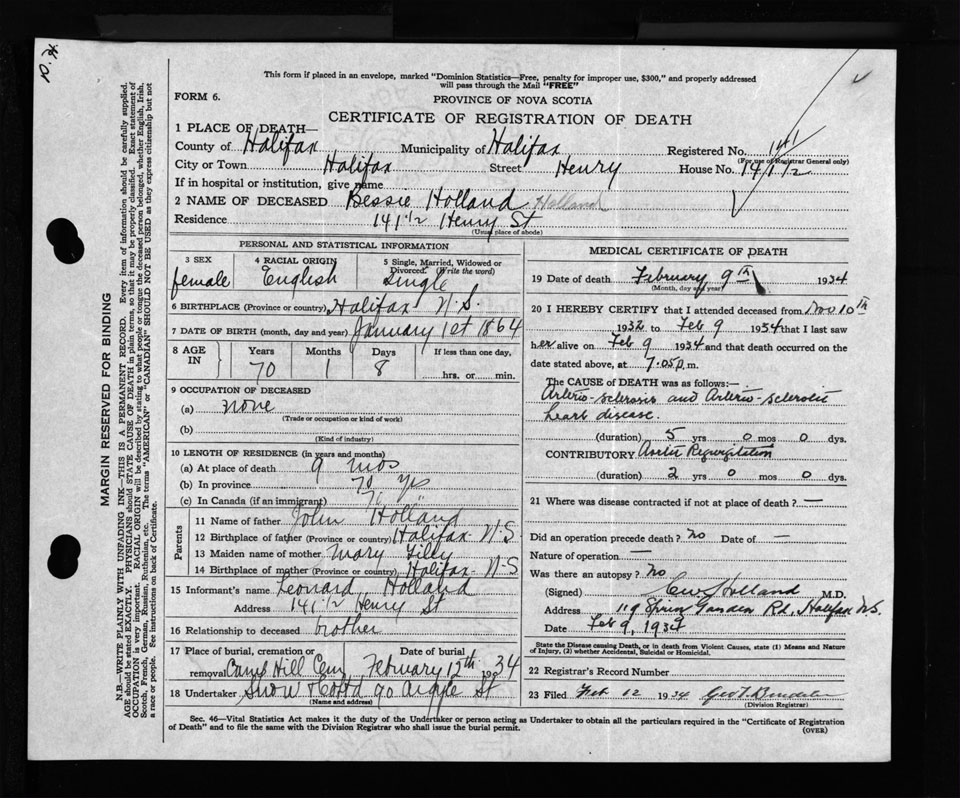 This form if placed in an envelope, marked "Dominion Statistics—Free, penalty for improper use, $300," and properly addressed
will pass through the Mail "FREE"
FORM 6.
PROVINCE OF NOVA SCOTIA
CERTIFICATE OF REGISTRATION OF DEATH
1 PLACE OF DEATH—
County of Halifax Municipality of Halifax Registered No. 141
(For use of Registrar General only)
City or Town Halifax Street Henry House No. 141 1/2
If in hospital or institution, give name
2 NAME OF DECEASED Bessie Holland Holland
Residence 141 1/2 Henry St
(Usual place of abode)
PERSONAL AND STATISTICAL INFORMATION
3 SEX female
4 RACIAL ORIGIN English
5 Single, Married, Widowed or Divorced. (Write the word) Single
6 BIRTHPLACE (Province or country) Halifax N.S.
7 DATE OF BIRTH (month, day and year) January 1st 1864
8 AGE IN Years 70 Months 1 Days 8 If less than one day, hrs. or min.
9 OCCUPATION OF DECEASED
(a) none
(Trade or occupation or kind of work)
(b)
(Kind of industry)
10 LENGTH OF RESIDENCE (in years and months)
(a) At place of death 9 mos
(b) In province 70 yrs
(c) In Canada (if an immigrant) 70 "
Parents
11 Name of father John Holland
12 Birthplace of father (Province or country) Halifax N.S
13 Maiden name of mother Mary
14 Birthplace of mother (Province or country) Halifax N-S
15 Informant's name Leonard Holland
Address 141 1/2 Henry St
16 Relationship to deceased brother
17 Place of burial, cremation or removal Camp Hill Cem Date of burial February 12th 1934
18 Undertaker Snow & Co Ltd 90 Argyle St
(Name and address)
MEDICAL CERTIFICATE OF DEATH
19 Date of death February 9th 1934
(Month, day and year)
20 I HEREBY CERTIFY that I attended deceased from Nov 10th
1932 to Feb 9 1934 that I last saw
her alive on Feb 9 1934 and that death occurred on the
date stated above, at 7.05 p.m.
The CAUSE OF DEATH was as follows:—
Arterio-sclerosis and Arterio-sclerotic
heart disease.
(duration) 5 yrs 0 mos 0 dys.
CONTRIBUTORY Aortic Regurgitation
(duration) 2 yrs 0 mos 0 dys.
21 Where was disease contracted if not at place of death? —
Did an operation precede death? no Date of —
Nature of operation —
Was there an autopsy? no
(Signed) Holland M.D.
Address 119 Spring Garden Rd, Halifax N.S.
Date Feb 9, 1934
State the Disease causing Death, or in death from Violent Causes, state (1) Means and Nature
of Injury, (2) whether Accidental, Suicidal or Homicidal.
22 Registrar's Record Number
23 Filed Feb 12 1934 Geo
(Division Registrar)
Sec. 46—Vital Statistics Act makes it the duty of the Undertaker or person acting as Undertaker to obtain all the particulars required in the "Certificate of Registration
of Death" and to file the same with the Division Registrar who shall issue the burial permit.
(OVER)
MARGIN RESERVED FOR BINDING
N.B.—WRITE PLAINLY WITH UNFADING INK—THIS IS A PERMANENT RECORD. Every item of information should be carefully supplied.
AGE should be stated EXACTLY. PHYSICIANS should STATE CAUSE OF DEATH in plain terms, so that it may be properly classified. Exact statement of
OCCUPATION is very important. RACIAL ORIGIN will be described by stating to what people or tongue the deceased person belonged, whether English, Irish,
Scotch, French, German, Russian, Ruthenian, etc. The terms "AMERICAN" or "CANADIAN" SHOULD NOT BE USED as they express citizenship but not
a race or people. See instructions on back of Certificate.